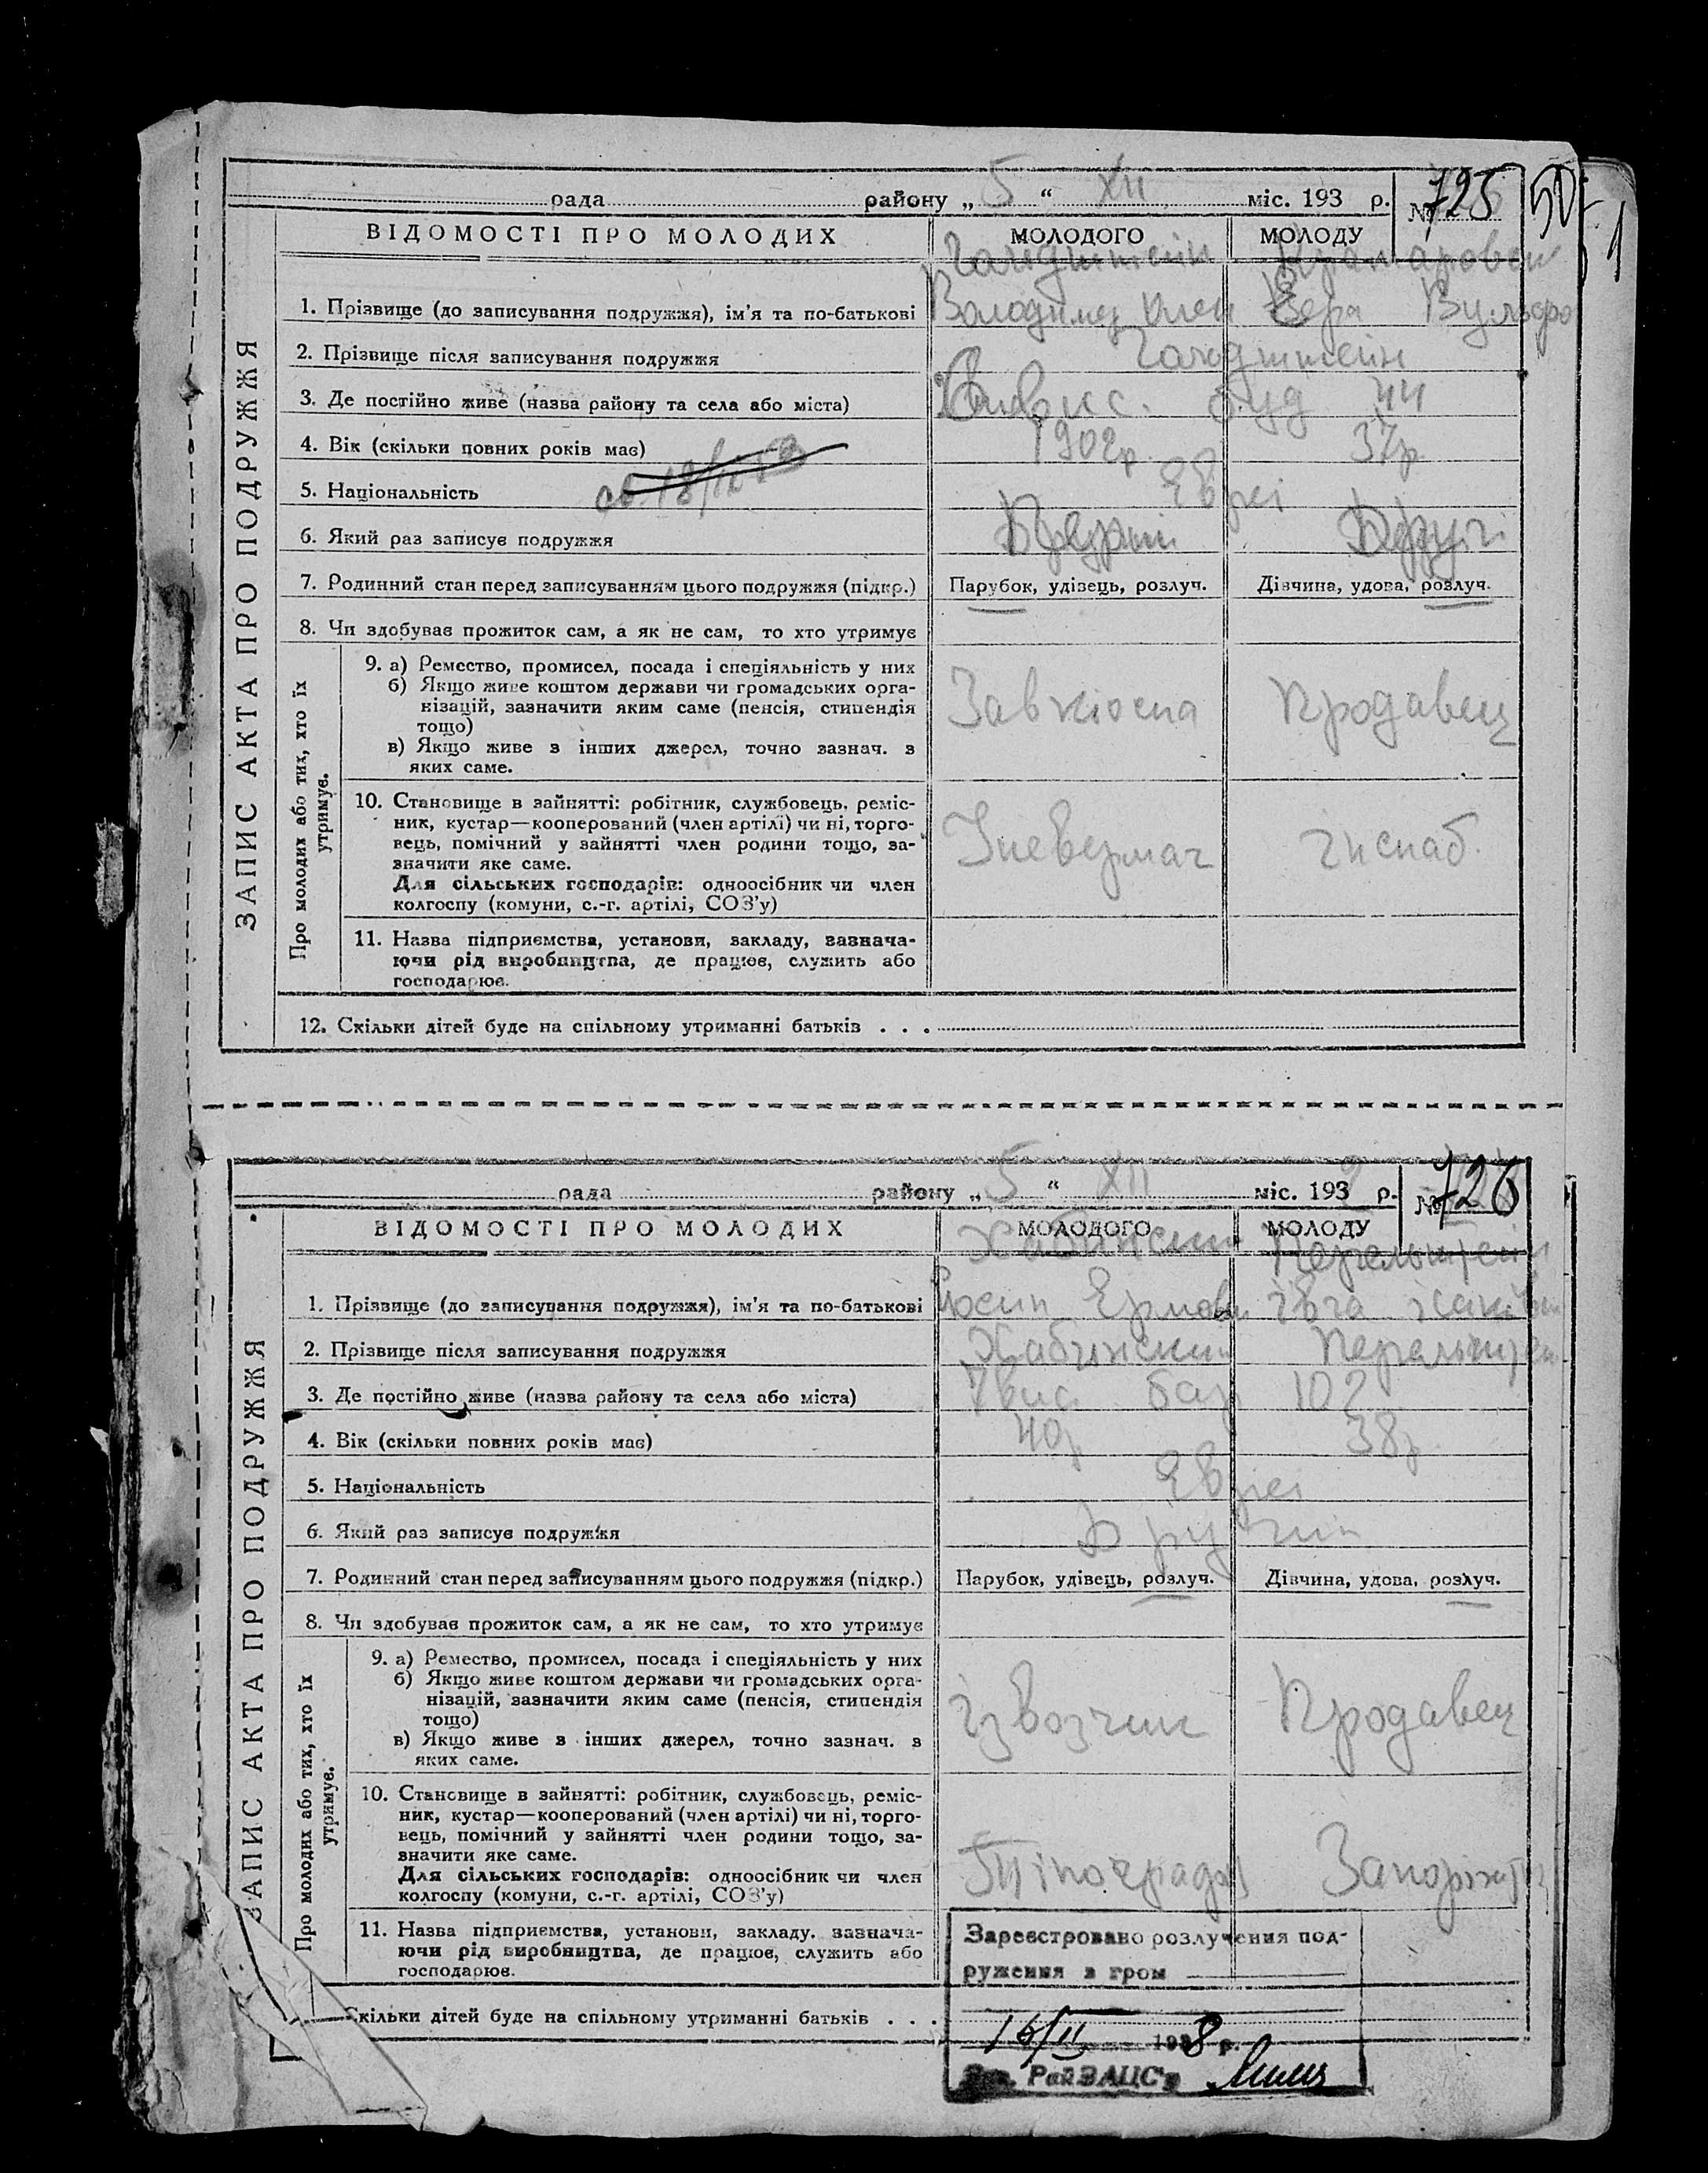 рада району „ 5 “ XII міс. 193 р. № 725
50
1
ВІДОМОСТІ ПРО МОЛОДИХ МОЛОДОГО МОЛОДУ
ЗАПИС АКТА ПРО ПОДРУЖЖЯ
1. Прізвище (до записування подружжя), ім'я та по-батькові Володимир Вера Вульфо
2. Прізвище після записування подружжя
3. Де постійно живе (назва району та села або міста) буд 44
4. Вік (скільки повних років має) 1902р. 37р
5. Національність Євреї
6. Який раз записує подружжя Другі
7. Родинний стан перед записуванням цього подружжя (підкр.) Парубок, удівець, розлуч. Дівчина, удова, розлуч.
8. Чи здобував прожиток сам, а як не сам, то хто утримує
Про молодих або тих, хто їх утримує.
9. а) Ремество, промисел, посада і спеціяльність у них
б) Якщо живе коштом держави чи громадських орга-
нізацій, зазначити яким саме (пенсія, стипендія
тощо)
Завкіоска Продавец
в) Якщо живе з інших джерел, точно зазнач. з
яких саме.
10. Становище в зайнятті: робітник, службовець, реміс-
ник, кустар—кооперований (член артілі) чи ні, торго-
вець, помічний у зайнятті член родини тощо, за-
значити яке саме.
Для сільських господарів: одноосібник чи член
колгоспу (комуни, с.-г. артілі, СОЗ'у)
11. Назва підприємства, установи, закладу, зазнача-
ючи рід виробництва, де працює, служить або
господарює.
12. Скільки дітей буде на спільному утриманні батьків . . .
рада району „ 5 “ XII міс. 193 2 р. № 726
ВІДОМОСТІ ПРО МОЛОДИХ МОЛОДОГО МОЛОДУ
ЗАПИС АКТА ПРО ПОДРУЖЖЯ
Перельштейн
1. Прізвище (до записування подружжя), ім'я та по-батькові Йосип
2. Прізвище після записування подружжя
3. Де постійно живе (назва району та села або міста) 102
4. Вік (скільки повних років має) 40р 38р
5. Національність Євреї
6. Який раз записує подружжя Другий
7. Родинний стан перед записуванням цього подружжя (підкр.) Парубок, удівець, розлуч. Дівчина, удова, розлуч.
8. Чи здобував прожиток сам, а як не сам, то хто утримує
Про молодих або тих, хто їх утримує.
9. а) Ремество, промисел, посада і спеціяльність у них
б) Якщо живе коштом держави чи громадських орга-
нізацій, зазначити яким саме (пенсія, стипендія
тощо)
ізвозчик Продавец
в) Якщо живе з інших джерел, точно зазнач. з
яких саме.
10. Становище в зайнятті: робітник, службовець, реміс-
ник, кустар—кооперований (член артілі) чи ні, торго-
вець, помічний у зайнятті член родини тощо, за-
значити яке саме.
Для сільських господарів: одноосібник чи член
колгоспу (комуни, с.-г. артілі, СОЗ'у)
11. Назва підприємства, установи, закладу, зазнача-
ючи рід виробництва, де працює, служить або
господарює.
кільки дітей буде на спільному утриманні батьків . . .
Зареєстровано розлучення под-
руження в гром
16/II 1938 р.
Зав. РайЗАЦС'у